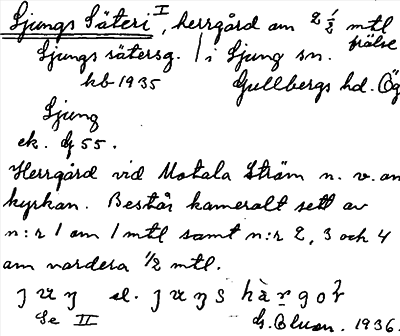 Ljungs Säteri I, herrgård om 2 1/2 mtl frälse
Ljungs sätersg. / i Ljung sn.
kb 1935 Gullbergs hd. Ög
Ljung
ek. G 55.
Herrgård vid Motala Ström n. v. om
kyrkan. Består kameralt sett av
n:r 1 om 1 mtl samt n:r 2, 3 och 4
om vardera 1/2 mtl.
el.
Se II
1936.